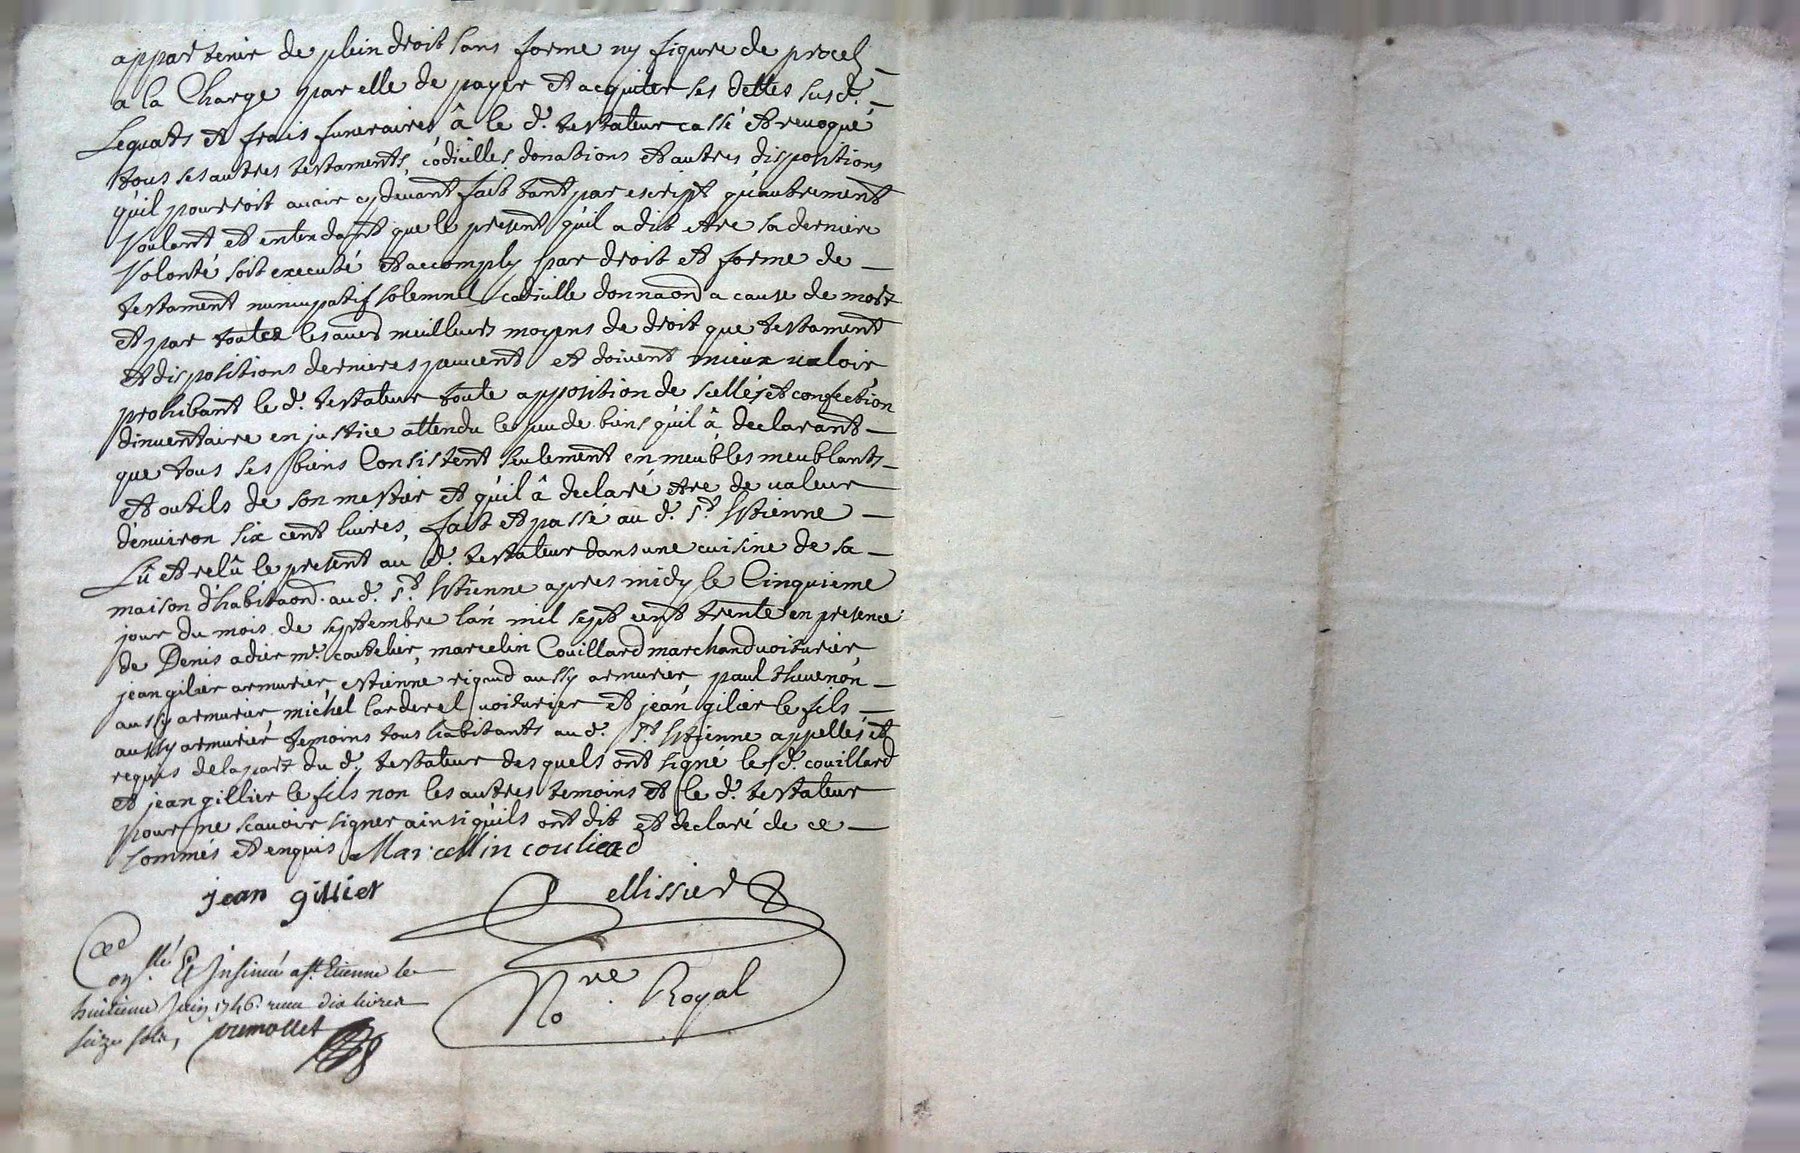 appartenir de plein droit sans forme ny figure de procés
a la Charge par elle de payer et acquiter ses dettes susd.
Legats et frais funeraires, â le d. testateur cassé et revoqué
tous ses autres testaments, codicilles, donations et autres dispositions
qu'il pourroit avoir cydevant fait tant par escript qu'autrement
voulant et entendant que le present qu'il a dit etre sa derniere
volonté soit executé et accomply par droit et forme de
testament nuncupatif solemnel, codicille donnaon a cause de mort
et par toutes les aues meilleurs moyens de droit que testament
et dispositions dernieres peuvent et doivent mieux valoir
prohibant le d. testateur toute apposition de scellés et confection
dinventaire en justice attendu le peu de biens qu'il â declarant
que tous ses biens Consistent seulement en meubles meublants
et outils de son mestier et qu'il â declaré etre de valeur
d'environ six cent livres, fait et passé au d. st. Etienne
Lû et relû le present au d. testateur dans une cuisine de sa
maison d'habitaon. au d. st. Etienne apres midy le Cinquieme
jour du mois de septembre l'an mil sept cent trente en presence
de Denis adier me. coutelier, marcelin Couillard marchand voiturier
jean gilier armurier, estienne rigaud aussy armurier, paul thevenon
aussy armurier, michel larderel voiturier et jean gilier le fils
aussy armurier temoins tous habitants au d. st. Etienne appellés et
requis de la part du d. testateur desquels ont signé le sd. couillard
et jean gillier le fils non les autres temoins et le d. testateur
pour ne scavoir signer ainsi qu'ils ont dit et declaré de ce
sommés et enquis Marcellin couliard
jean gilliet
Pellissier
Nore. Royal
Conllé & Insinué a St. Etienne le
huitieme Juin 1746. receu dix livres
seize sols, premollet